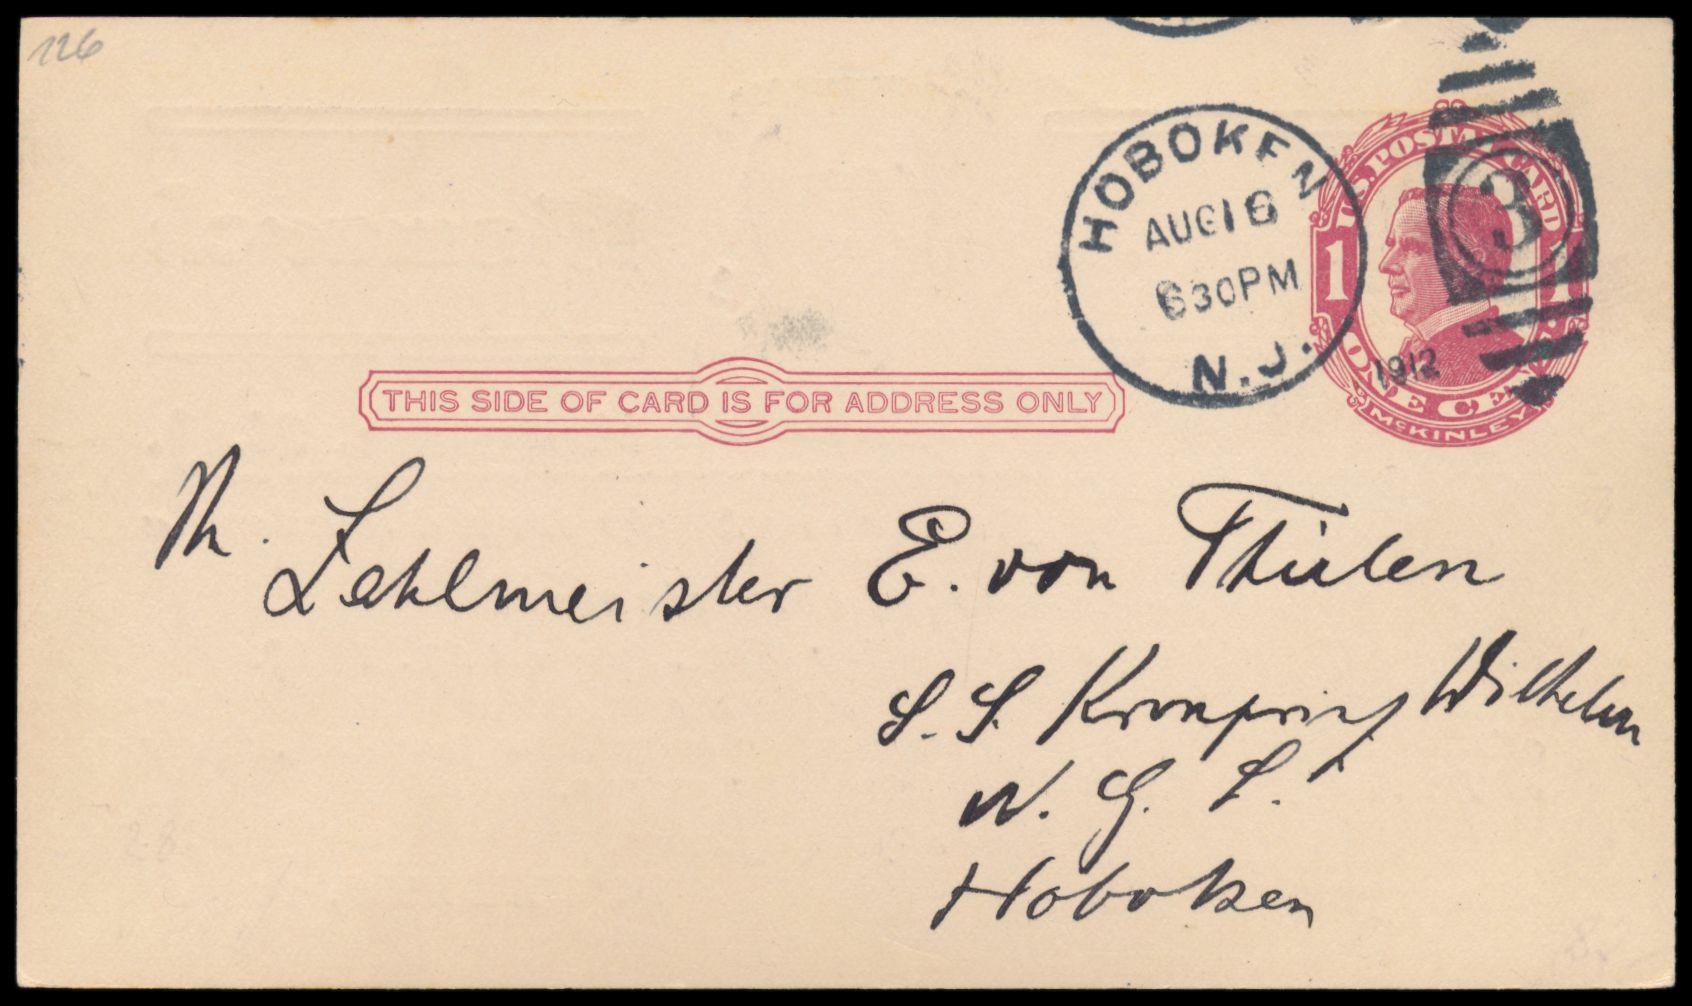 126
HOBOKEN
AUG 16
630PM
N.J.
1912
3
U.S. POSTAL CARD
1 1
ONE CENT
McKINLEY
THIS SIDE OF CARD IS FOR ADDRESS ONLY
Zahlmeister E. von Thülen
S. S. Kronprinz Wilhelm
N. G. L.
Hoboken